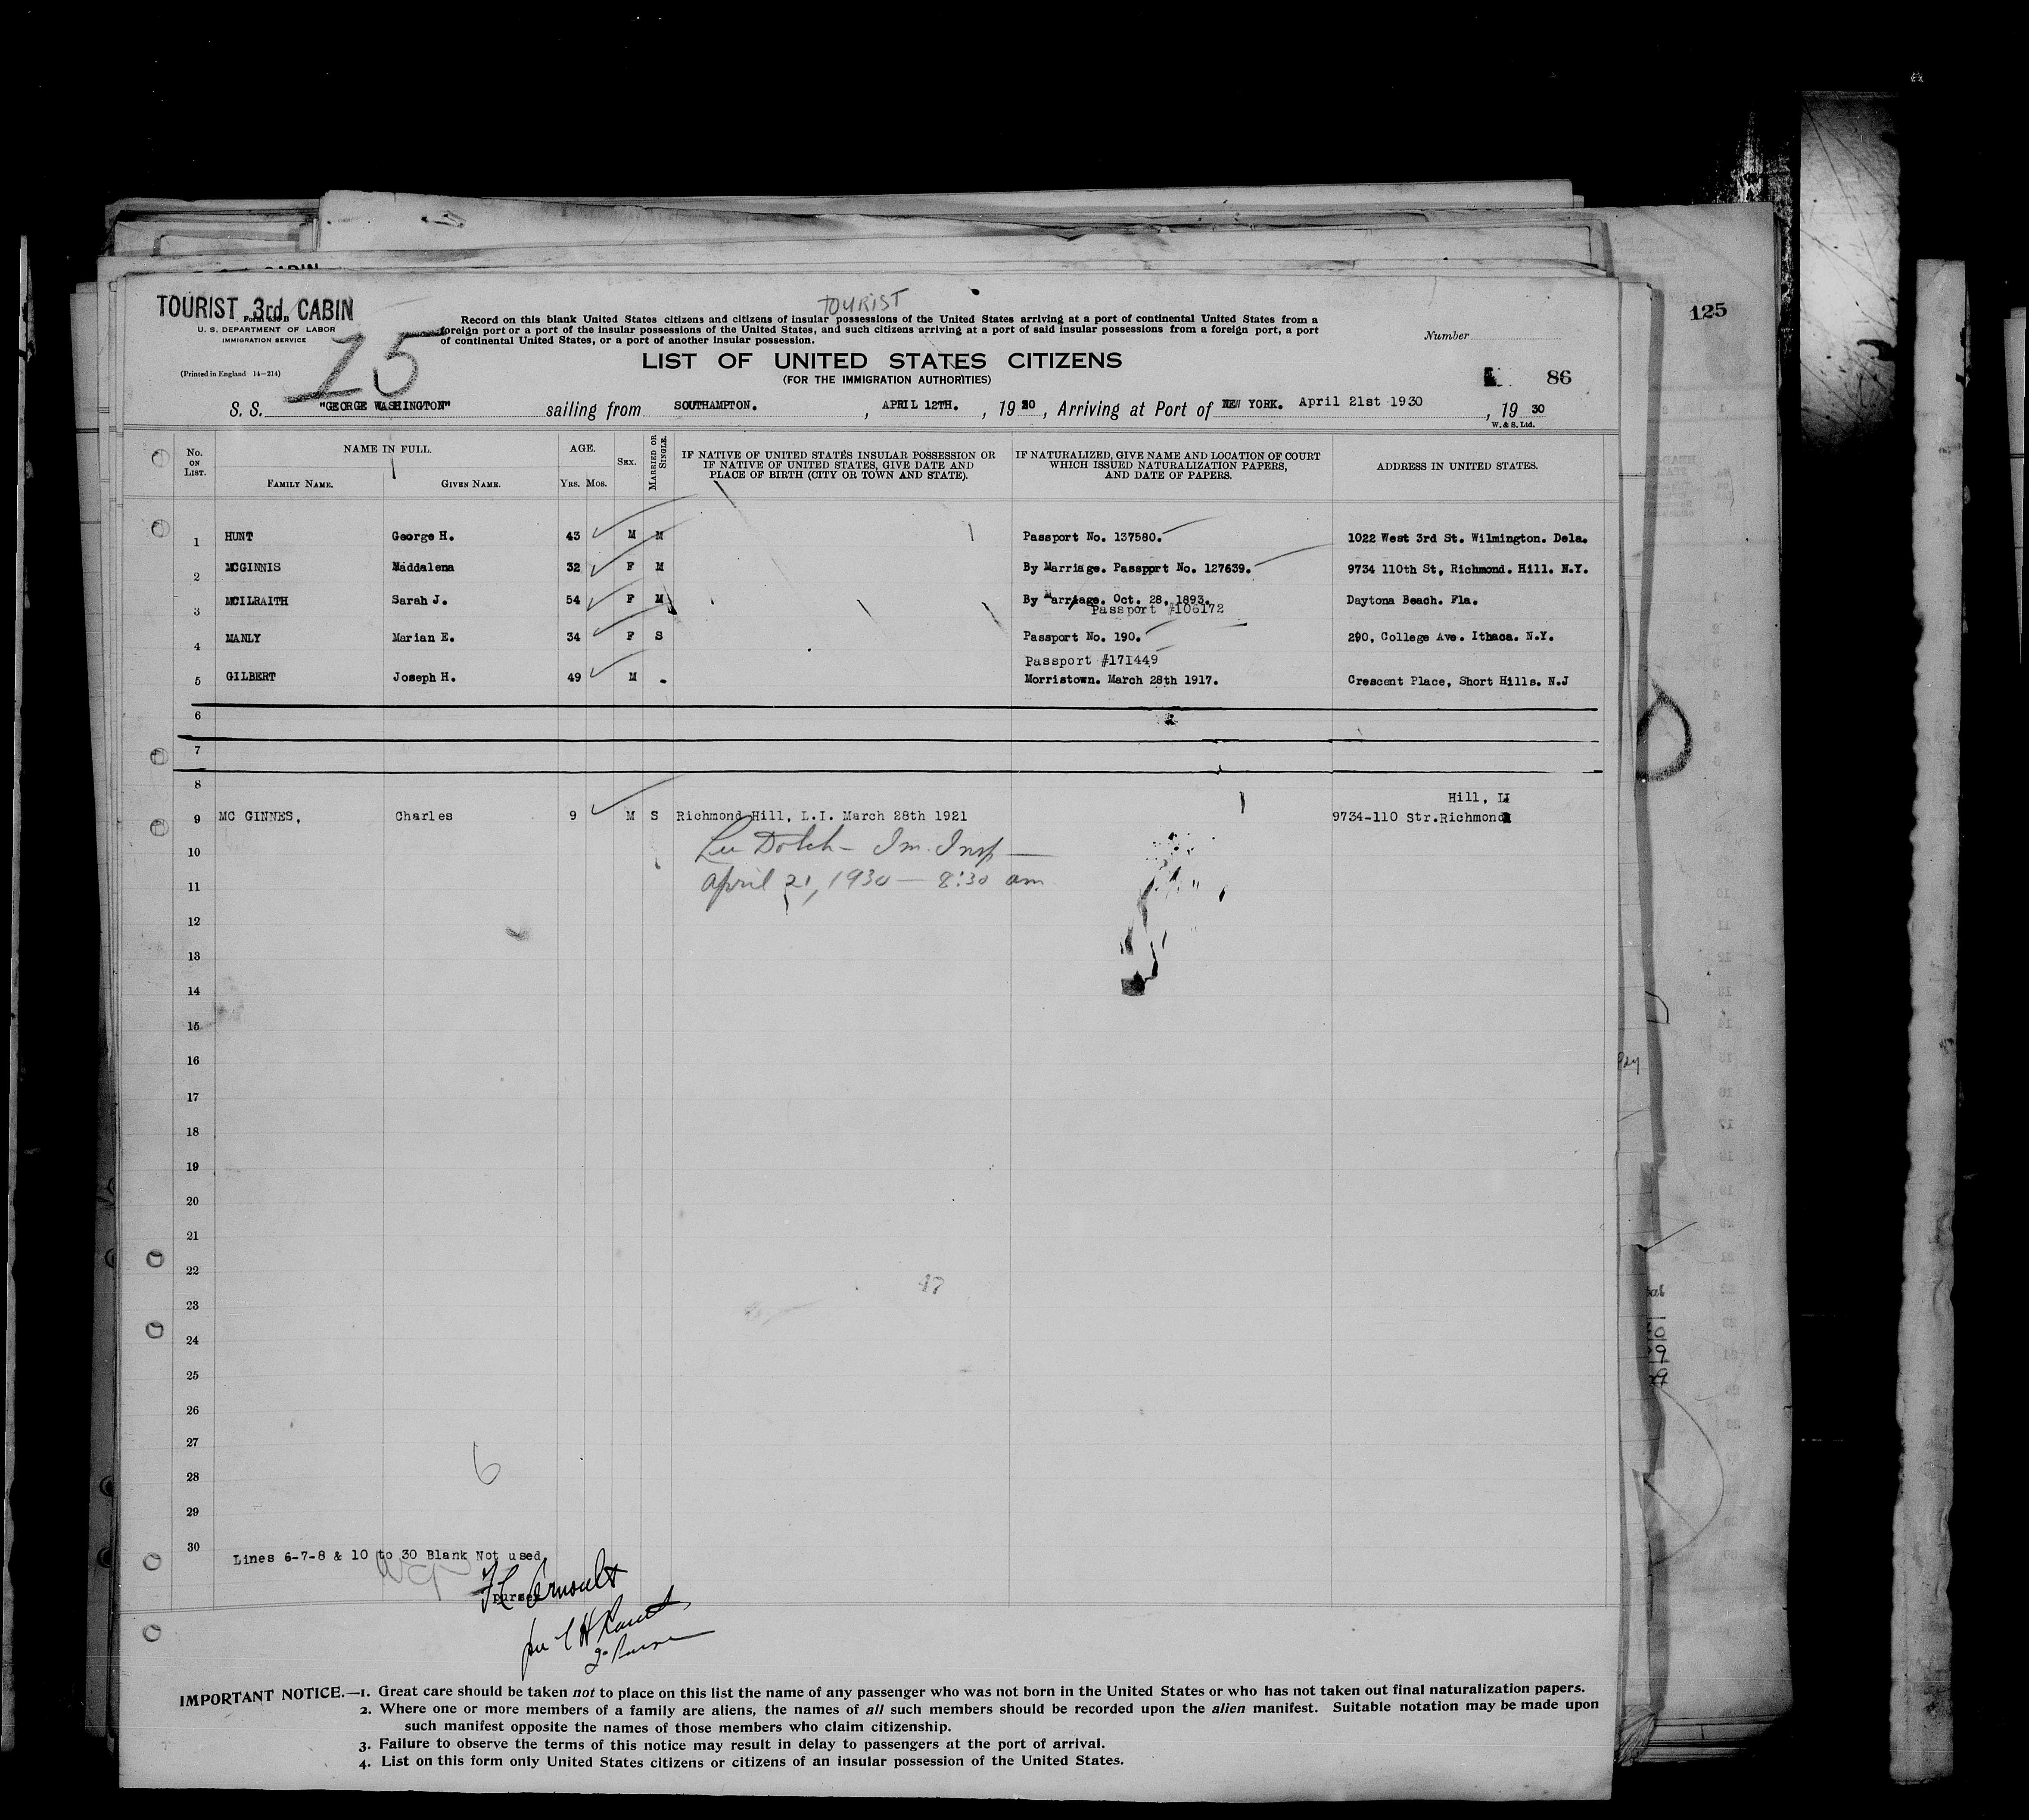 125
TOURIST 3rd CABIN
TOURIST
U. S. DEPARTMENT OF LABOR
IMMIGRATION SERVICE
(Printed in England 14—214)
Record on this blank United States citizens and citizens of insular possessions of the United States arriving at a port of continental United States from a
foreign port or a port of the insular possessions of the United States, and such citizens arriving at a port of said insular possessions from a foreign port, a port
of continental United States, or a port of another insular possession.
Number
LIST OF UNITED STATES CITIZENS
(FOR THE IMMIGRATION AUTHORITIES)
86
S. S. "GEORGE WASHINGTON" sailing from SOUTHAMPTON. , APRIL 12TH. , 19 30 , Arriving at Port of NEW YORK. April 21st 1930 , 19 30
W. & S. Ltd.
No. ON LIST. NAME IN FULL. AGE. SEX. MARRIED OR SINGLE. IF NATIVE OF UNITED STATES INSULAR POSSESSION OR IF NATIVE OF UNITED STATES, GIVE DATE AND PLACE OF BIRTH (CITY OR TOWN AND STATE). IF NATURALIZED, GIVE NAME AND LOCATION OF COURT WHICH ISSUED NATURALIZATION PAPERS, AND DATE OF PAPERS. ADDRESS IN UNITED STATES.
FAMILY NAME. GIVEN NAME. YRS. MOS.
1 HUNT George H. 43 M M Passport No. 137580. 1022 West 3rd St. Wilmington. Dela.
2 MCGINNIS Maddalena 32 F M By Marriage. Passport No. 127639. 9734 110th St, Richmond. Hill. N.Y.
3 MCILRAITH Sarah J. 54 F M By Marriage. Oct. 28, 1893. Daytona Beach. Fla.
Passport #106172
4 MANLY Marian E. 34 F S Passport No. 190. 290, College Ave. Ithaca. N.Y.
Passport #171449
5 GILBERT Joseph H. 49 M Morristown. March 28th 1917. Crescent Place, Short Hills. N.J
6
7
8
Hill, LI
9 MC GINNES, Charles 9 M S Richmond Hill, L.I. March 28th 1921 9734-110 Str.Richmond
10 Im. Insp —
11 April 21, 1930 — 8:30 am
12
13
14
15
16
17
18
19
20
21
22
23
24
25
26
27
6
28
29
30
Lines 6-7-8 & 10 to 30 Blank Not used
purser
IMPORTANT NOTICE.—1. Great care should be taken not to place on this list the name of any passenger who was not born in the United States or who has not taken out final naturalization papers.
2. Where one or more members of a family are aliens, the names of all such members should be recorded upon the alien manifest. Suitable notation may be made upon
such manifest opposite the names of those members who claim citizenship.
3. Failure to observe the terms of this notice may result in delay to passengers at the port of arrival.
4. List on this form only United States citizens or citizens of an insular possession of the United States.